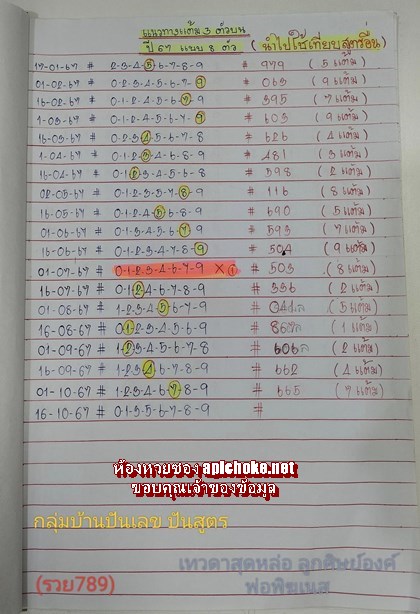 แนวทางแต้ม 3 ตัวบน
ปี 67 แบบ 8 ตัว ( นำไปใช้เทียบสูตรอื่น )
17-01-67 # 2-3-4-5-6-7-8-9 # 979 ( 5 แต้ม )
01-02-67 # 0-1-2-3-4-5-7-9 # 063 ( 9 แต้ม )
16-02-67 # 0-1-2-3-4-5-6-7 # 395 ( 7 แต้ม )
1-03-67 # 0-1-2-3-4-6-7-9 # 603 ( 9 แต้ม )
16-03-67 # 0-2-3-4-5-6-7-8 # 626 ( 4 แต้ม )
1-04-67 # 0-1-2-3-5-6-7-9 # 481 ( 3 แต้ม )
16-04-67 # 0-1-2-3-5-6-8-9 # 598 ( 2 แต้ม )
02-05-67 # 0-1-2-3-5-7-8-9 # 116 ( 8 แต้ม )
16-05-67 # 0-1-2-4-5-6-8-9 # 690 ( 5 แต้ม )
01-06-67 # 0-1-2-3-5-6-7-9 # 593 ( 7 แต้ม )
16-06-67 # 0-1-2-3-4-7-8-9 # 504 ( 9 แต้ม )
01-07-67 # 0-1-2-3-4-6-7-9 × ① # 503 ( 8 แต้ม )
16-07-67 # 0-1-2-4-5-6-7-8 # 336 ( 2 แต้ม )
01-08-67 # 1-2-3-4-5-6-7-9 # 041 ( 5 แต้ม )
16-08-67 # 0-1-2-3-5-6-7-8 # 867 ( 1 แต้ม )
01-09-67 # 1-2-3-4-5-6-7-8 # 606 ( 2 แต้ม )
16-09-67 # 1-2-3-4-5-6-8-9 # 662 ( 4 แต้ม )
01-10-67 # 1-2-3-4-6-7-8-9 # 665 ( 7 แต้ม )
16-10-67 # 0-1-3-5-6-7-8-9 #
ห้องหวยซอง apichoke.net
ขอบคุณเจ้าของข้อมูล
กลุ่มบ้านปันเลข ปันสูตร
เทวดาสุดหล่อ ลูกศิษย์องค์
พ่อพิฆเนส
(รวย789)